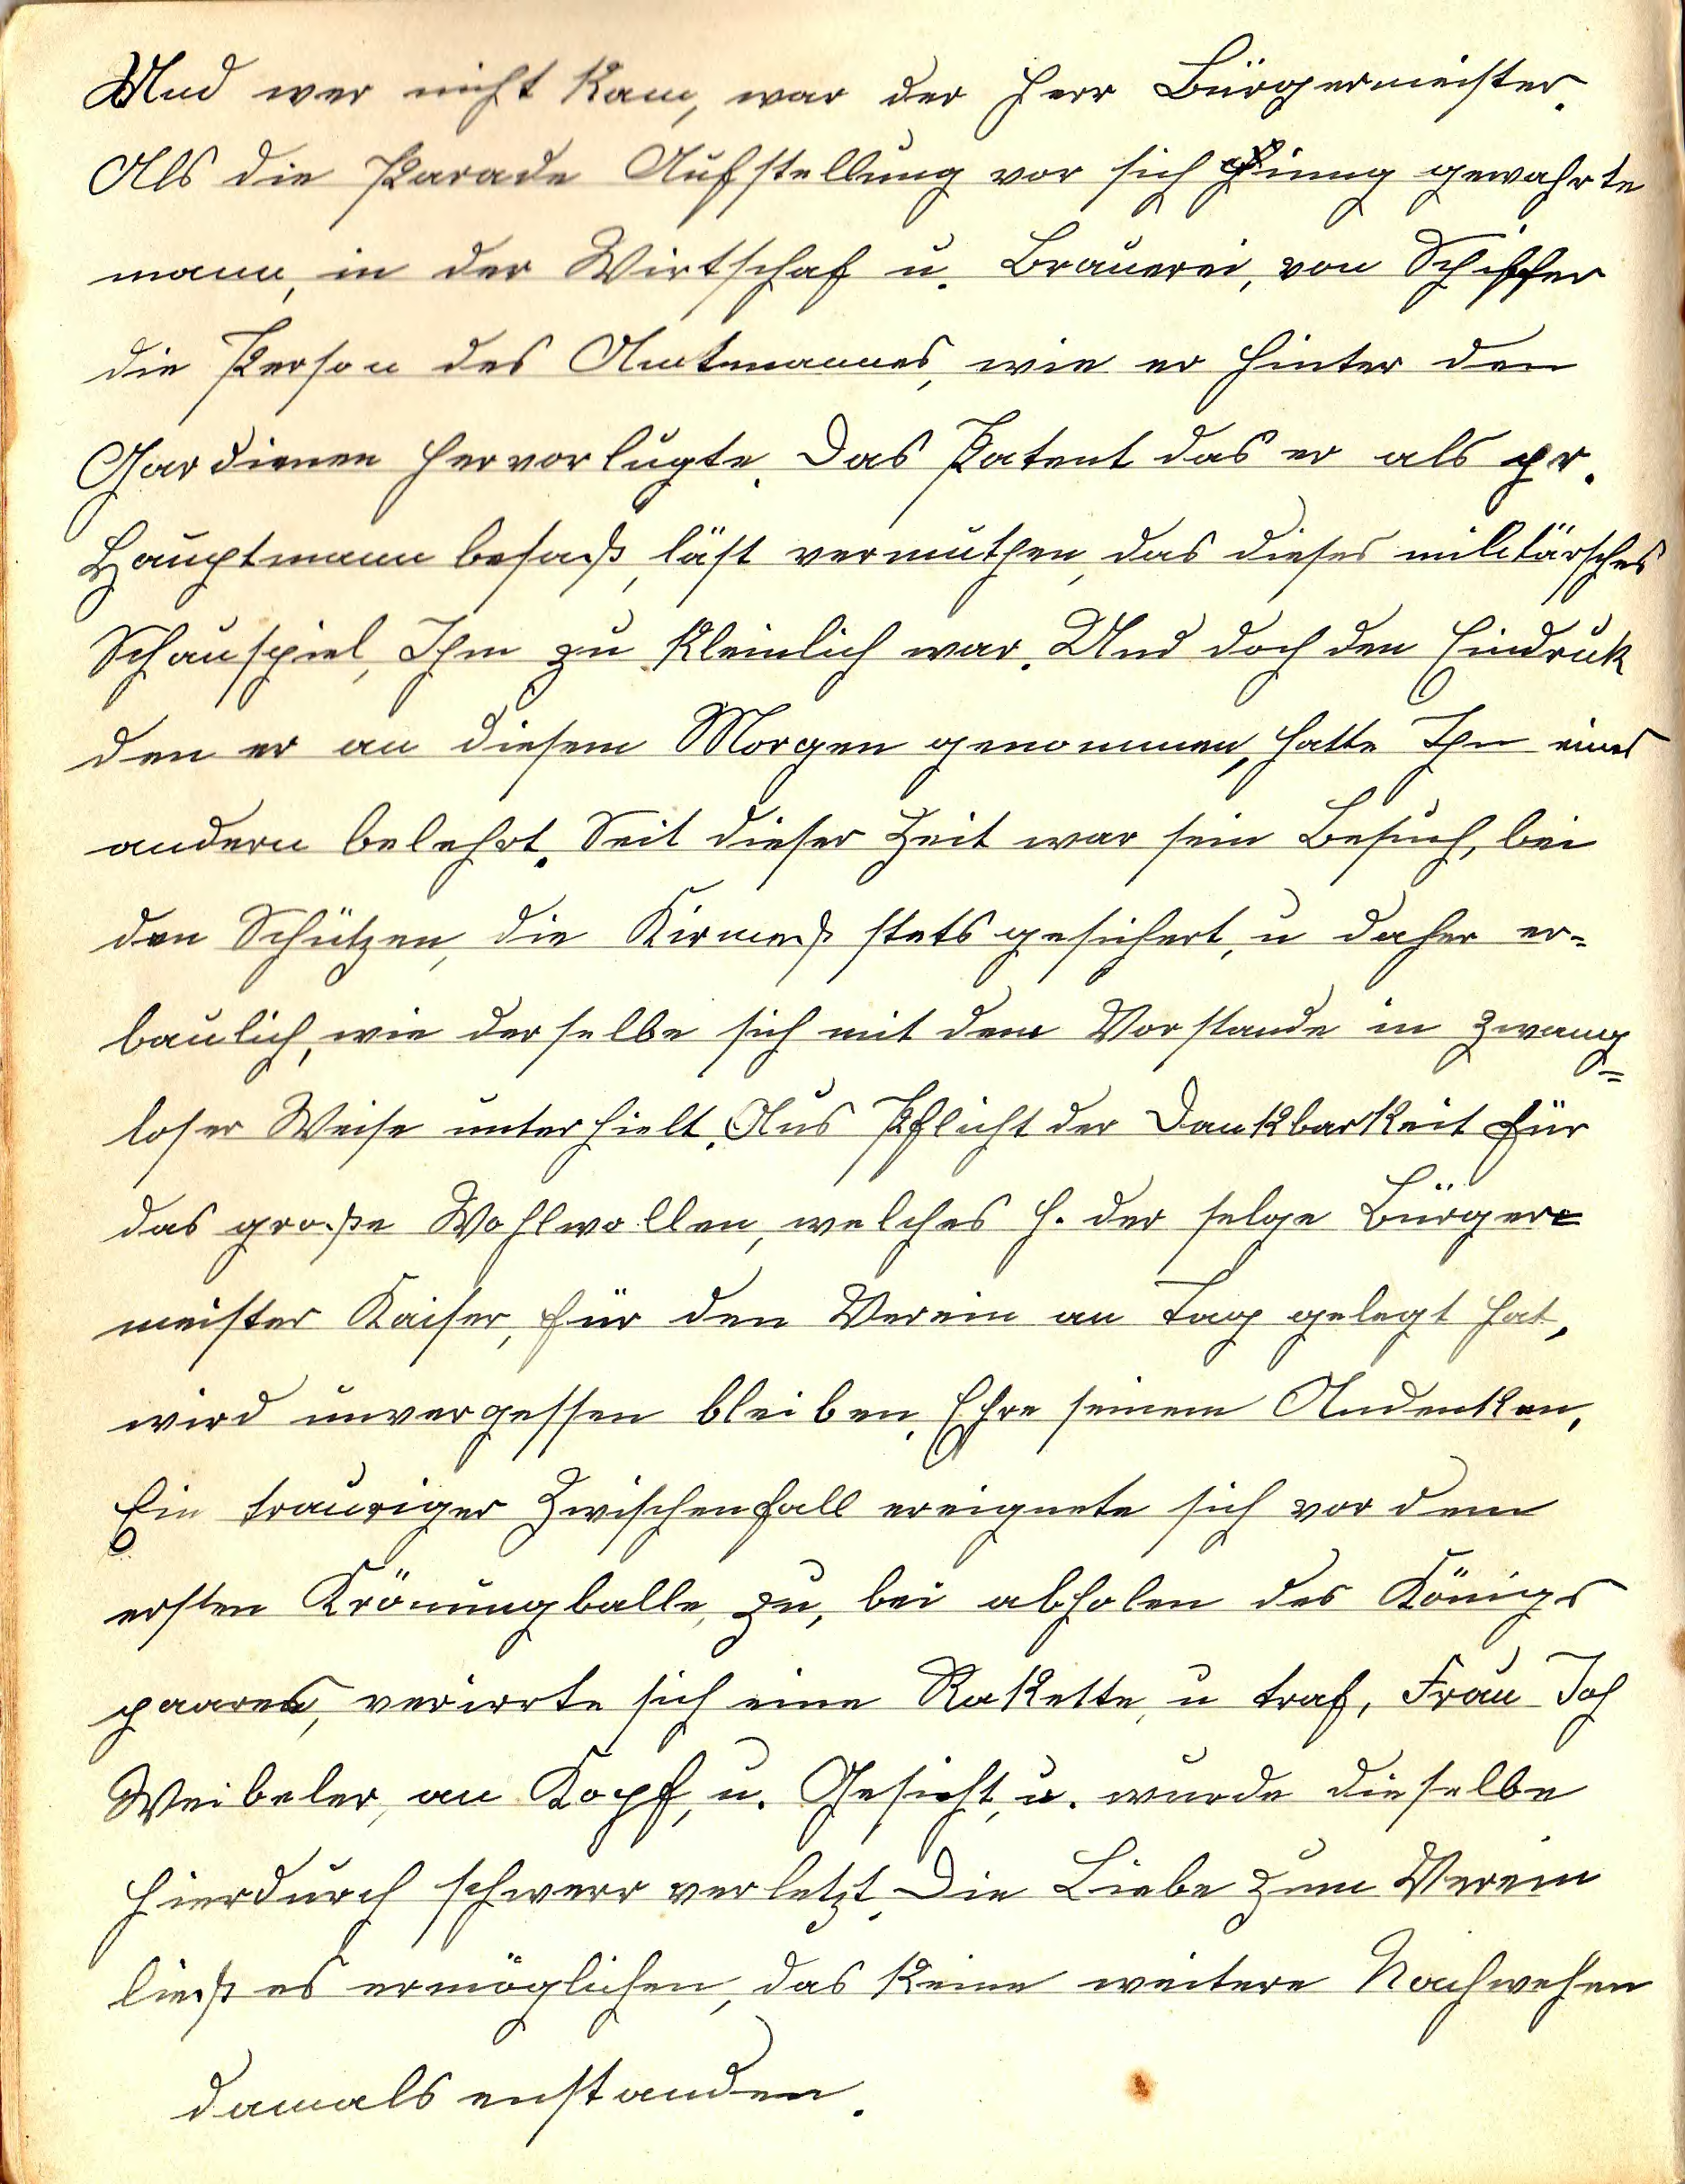 Und wer nicht kam, war der Herr Bürgermeister.
Als die Parade Aufstellung vor sich ginng gewahrte
mann, in der Wirtschaf u. Brauerei, von Schiffer
die Person des Amtmannes, wie er hinter den
Gardienen hervorlugte. Das Patent das er als pr.
Hauptmann besaß, läst vermuthen, das dieses militärsches
Schauspiel, Ihm zu kleinlich war. Und doch den Eindruk
den er an diesem Morgen genommen, hatte Ihn eines
andern belehrt. Seit dieser Zeit war sein Besuch, bei
den Schützen, die Kirmeß stets gesichert, u daher er=
baulich, wie derselbe sich mit dem Vorstande in zwang=
loser Weise unterhielt. Aus Pflicht der Dankbarkeit für
das große Wohlwollen, welches H. der selge Bürger=
meister Kaiser, für den Verein an Tag gelegt hat,
wird unvergessen bleiben. Ehre seinem Andenken,
Ein trauriger Zwischenfall ereignete sich vor dem
ersten Krönungballe, zu, bei abholen des Königs
paares, verirrte sich eine Rakette, u traf, Frau Joh
Weibeler, an Kopf, u. Gesicht, u. wurde dieselbe
hierdurch schwerr verletzt. Die Liebe zum Verein
ließ es ermöglichen, das keine weitere Nachwehen
damals enstanden.